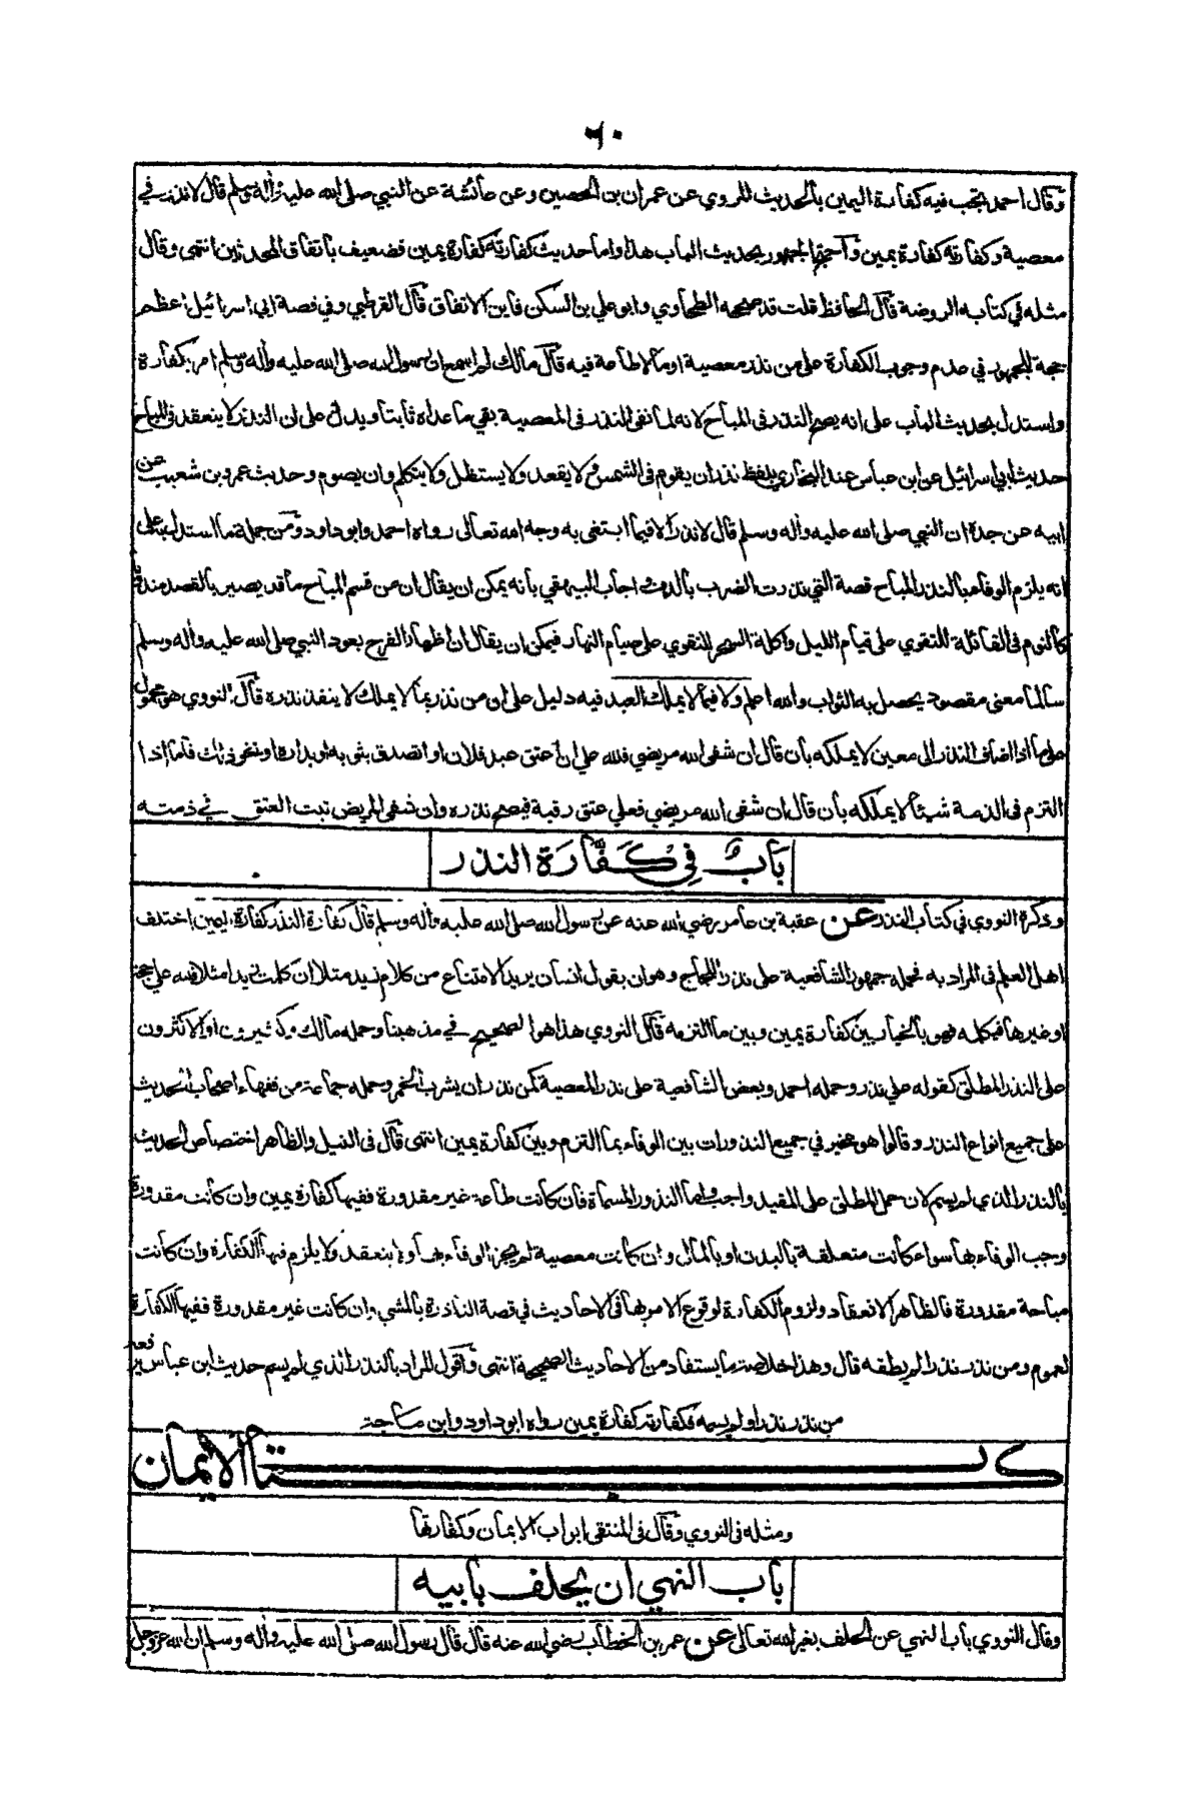 ٦٠
وقال احمد تجب فيه كفارة اليمين بالحديث المروي عن عمران بن الحصين وعن عائشة عن النبي صلى الله عليه وأله وسلم قال لا نذر في
معصية وكفارته كفارة يمين واحتج الجمهور بحديث الباب هذا واما حديث كفارته كفارة يمين فضعيف باتفاق المحدثين انتهى وقال
مثله في كتابه الروضة قال الحافظ قلت قد صححه الطحاوي وابو علي بن السكن فاين الاتفاق قال القرطبي وفي قصة ابي اسرائيل اعظم
حجة للجمهور في عدم وجوب الكفارة على من نذر معصية او ما لا طاعة فيه قال مالك لم اسمع ان رسول الله صلى الله عليه وأله وسلم امره بكفارة
واستدل بحديث الباب على انه يصح النذر في المباح لانه لما نفى النذر في المعصية بقي ما عداه ثابتا ويدل على ان النذر لا ينعقد في المباح
حديث ابي اسرائيل عن ابن عباس عند البخاري بلفظ نذر ان يقوم في الشمس ولا يقعد ولا يستظل ولا يتكلم وان يصوم وحديث عمرو بن شعيب عن
ابيه عن جده ان النبي صلى الله عليه وأله وسلم قال لا نذر الا فيما ابتغى به وجه الله تعالى رواه احمد وابو داود ومن جملة ما استدل به على
انه يلزم الوفاء بالنذر المباح قصة التي نذرت الضرب بالدف اجاب البيهقي بانه يمكن ان يقال ان من قسم المباح ما قد يصير بالقصد مندوبا
كالنوم في القائلة للتقوي على قيام الليل واكلة السحر للتقوي على صيام النهار فيمكن ان يقال ان اظهار الفرح بعود النبي صلى الله عليه وأله وسلم
سالما معنى مقصود يحصل به الثواب والله اعلم ولا فيما لا يملك العبد فيه دليل على ان من نذر بما لا يملك لا ينفذ نذره قال النووي هو محمول
على ما اذا اضاف النذر الى معين لا يملكه بان قال ان شفى الله مريضي فلله علي ان اعتق عبد فلان او اتصدق بثوبه او بداره او نحو ذلك فاما اذا
التزم في الذمة شيئا لا يملكه بان قال ان شفى الله مريضي فعلي عتق رقبة فيصح نذره وان شفى المريض ثبت العتق في ذمته
باب في كفارة النذر
وذكره النووي في كتاب النذر عن عقبة بن عامر رضي الله عنه عن رسول الله صلى الله عليه وأله وسلم قال كفارة النذر كفارة اليمين اختلف
اهل العلم في المراد به فحمله جمهور الشافعية على نذر اللجاج وهو ان يقول انسان يريد الامتناع من كلام زيد مثلا ان كلمت زيدا مثلا فلله علي حجة
او غيرها فيكلمه فهو بالخيار بين كفارة يمين وبين ما التزمه قال النووي هذا هو الصحيح في مذهبنا وحمله مالك وكثيرون او الاكثرون
على النذر المطلق كقوله علي نذر وحمله احمد وبعض الشافعية على نذر المعصية كمن نذر ان يشرب الخمر وحمله جماعة من فقهاء اصحاب الحديث
على جميع انواع النذر وقالوا هو مخير في جميع النذورات بين الوفاء بما التزم وبين كفارة يمين انتهى قال في النيل والظاهر اختصاص الحديث
بالنذر الذي لم يسم لان حمل المطلق على المقيد واجب واما النذور المسماة فان كانت طاعة غير مقدورة ففيها كفارة يمين وان كانت مقدورة
وجب الوفاء بها سواء كانت متعلقة بالبدن او بالمال وان كانت معصية لم يجز الوفاء بها ولا ينعقد ولا يلزم فيها الكفارة وان كانت
مباحة مقدورة فالظاهر الانعقاد ولزوم الكفارة لوقوع الامر بها في الاحاديث في قصة الناذرة بالمشي وان كانت غير مقدورة ففيها الكفارة
لعموم ومن نذر نذرا لم يطقه قال وهذا خلاصة ما يستفاد من الاحاديث الصحيحة انتهى واقول المراد بالنذر الذي لم يسم حديث ابن عباس
من نذر نذرا ولم يسمه فكفارته كفارة يمين رواه ابو داود وابن ماجة
كتاب الايمان
ومثله في النووي وقال في المنتقى ابواب الايمان وكفارتها
باب النهي ان يحلف بابيه
وقال النووي باب النهي عن الحلف بغير الله تعالى عن عمر بن الخطاب رضي الله عنه قال قال رسول الله صلى الله عليه وأله وسلم ان الله عز وجل